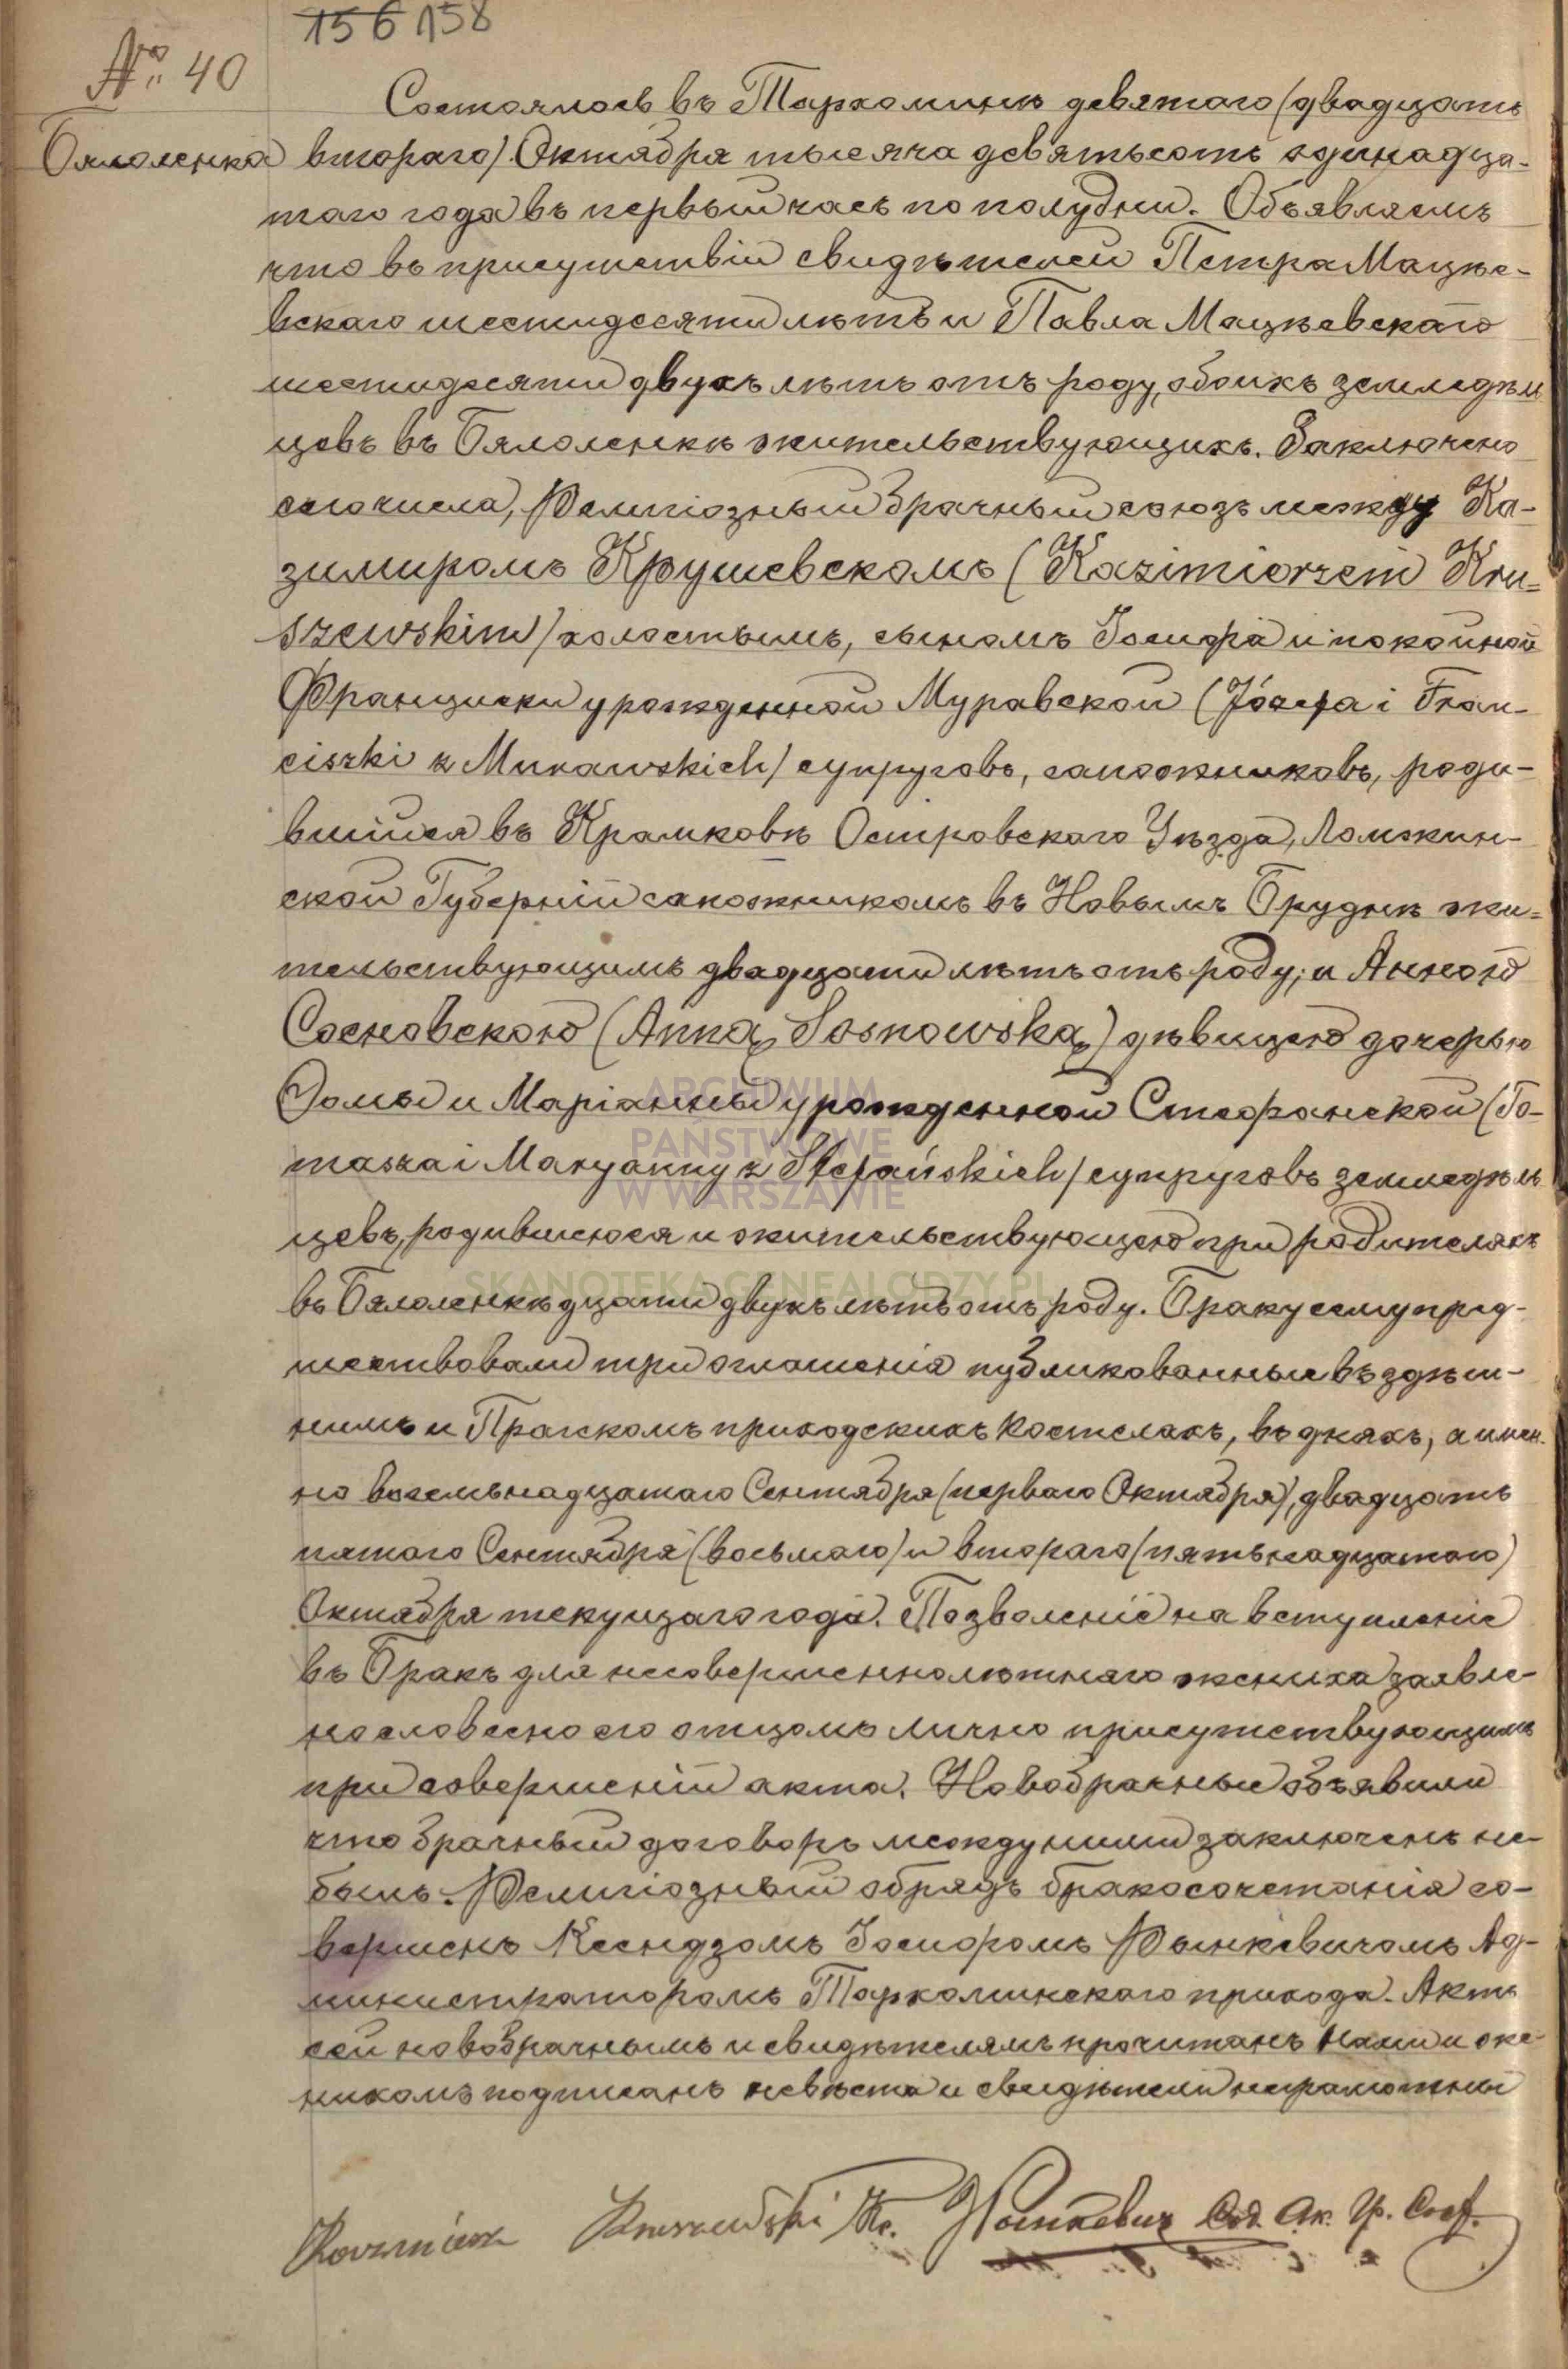 156 158
№ 40
Бялоленка
Состоялось въ Тархоминѣ девятаго (двадцать
втораго) Октября тысяча девятьсотъ одинадца-
таго года въ первый часъ по полудни. Объявляемъ
что въ присутствіи свидѣтелей Петра Мацѣе-
вскаго шестидесяти лѣтъ и Павла Мацѣевскаго
шестидесяти двухъ лѣтъ отъ роду, обоихъ земледѣль
цевъ въ Бялоленкѣ жительствующихъ. Заключено
сего числа, Религіозный брачный союзъ между Ка-
зимиромъ Крушевскомъ (Kazimierzem Kru-
szewskim) холостымъ, сыномъ Іосифа и покойной
Франциски урожденной Муравской (Józefa i Fran-
ciszki z Murawskich) супруговъ, сапожниковъ, роди-
вшійся въ Крамковѣ Островскаго Уѣзда, Ломжин-
ской Губерніи сапожникомъ въ Новымъ Бруднѣ жи-
тельствующимъ двадцати лѣтъ отъ роду; и Анною
Сосновскою (Anną Sosnowską) дѣвицею дочерью
Ѳомы и Маріанны урожденной Стефанской (To-
masza i Maryanny z Stefańskich) супруговъ земледѣль
цевъ, родившеюся и жительствующею при родителяхъ
въ Бялоленкѣ дцати двухъ лѣтъ отъ роду. Браку сему пред-
шествовали три оглашенія публикованные въ здѣш-
нимъ и Пражскомъ приходскихъ костелахъ, въ дняхъ, а имен-
но восемьнадцатаго Сентября (перваго Октября), двадцать
пятаго Сентября (восьмаго) и втораго (пятьнадцатаго)
Октября текущаго года. Позволеніе на вступленіе
въ Бракъ для несовершеннолѣтнаго жениха заявле-
но словесно его отцомъ лично присутствующимъ
при совершеніи акта. Новобрачные объявили
что брачный договоръ между ними заключенъ не-
былъ. Религіозный обрядъ бракосочетанія со-
вершенъ Ксендзомъ Іосифомъ Рынкевичомъ Ад-
министраторомъ Тархоминскаго прихода. Актъ
сей новобрачнымъ и свидѣтелямъ прочитанъ Нами и же-
нихомъ подписанъ невѣста и свидѣтели неграмотны
Kazimierz Kruszewski Кс. Рынкевич Сод. Ак. Гр. Сост.
ARCHIWUM
PAŃSTWOWE
W WARSZAWIE
SKANOTEKA.GENEALODZY.PL